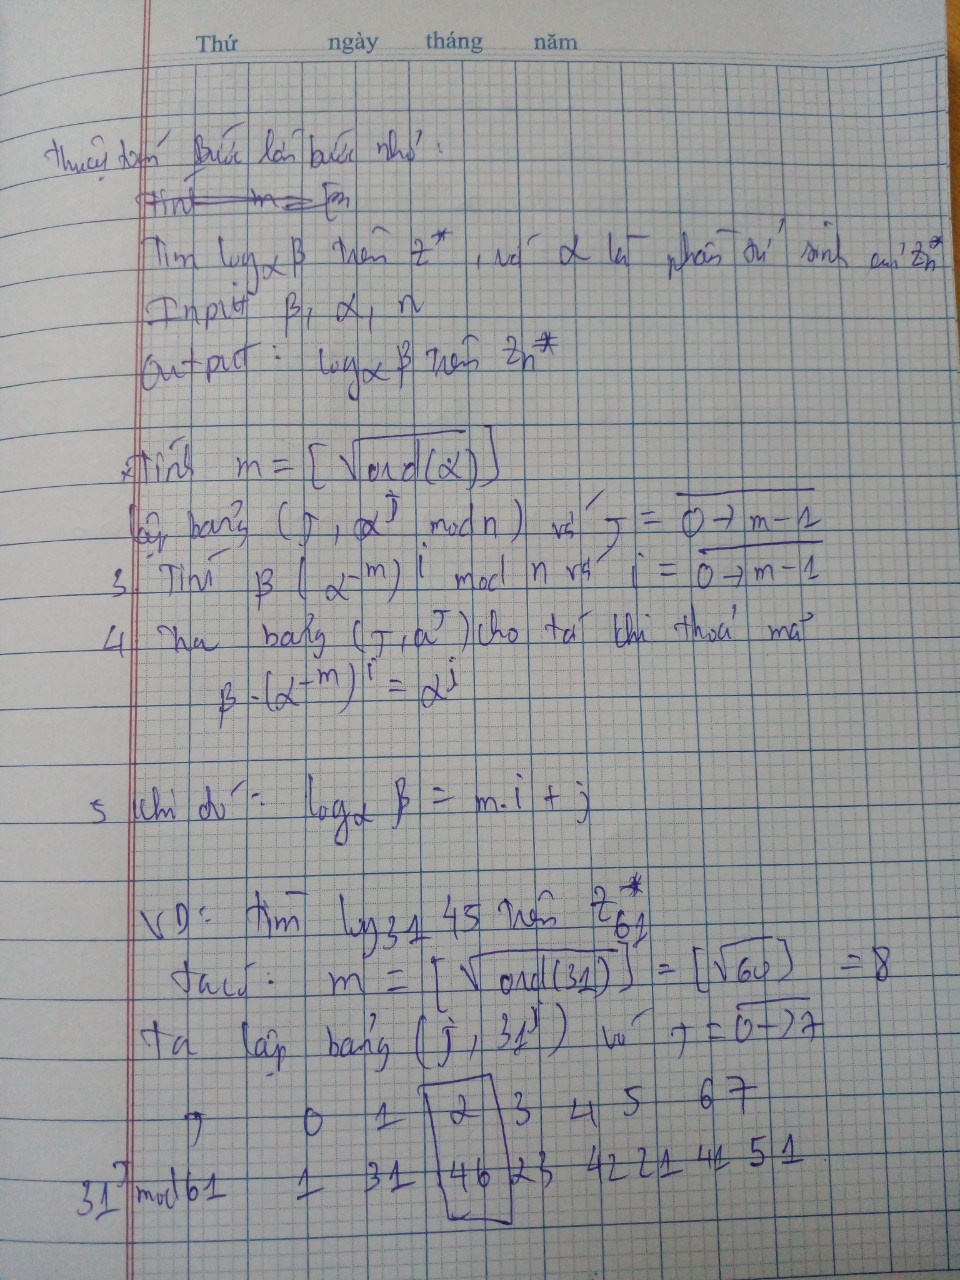 Thứ ngày tháng năm
Thuật toán Bước lớn bước nhỏ:
Tính m = [m
Tìm log_α β trên Z*, với α là phần tử sinh của Zn*
Input β, α, n
Output: log_α β trên Zn*
Tính m = [√ord(α)]
lập bảng (j, α^j mod n) với j = 0→m-1
3 Tính β(α^-m)^i mod n với i = 0→m-1
4 Tra bảng (j, α^j) cho tới khi thoả mãn
β·(α^-m)^i = α^j
5 Khi đó: log_α β = m.i + j
VD: Tìm log_31 45 trên Z*61
Ta có: m = [√ord(31)] = [√60] = 8
Ta lập bảng (j, 31^j) với j = 0→7
j 0 1 2 3 4 5 6 7
31^j mod 61 1 31 46 23 42 21 41 51